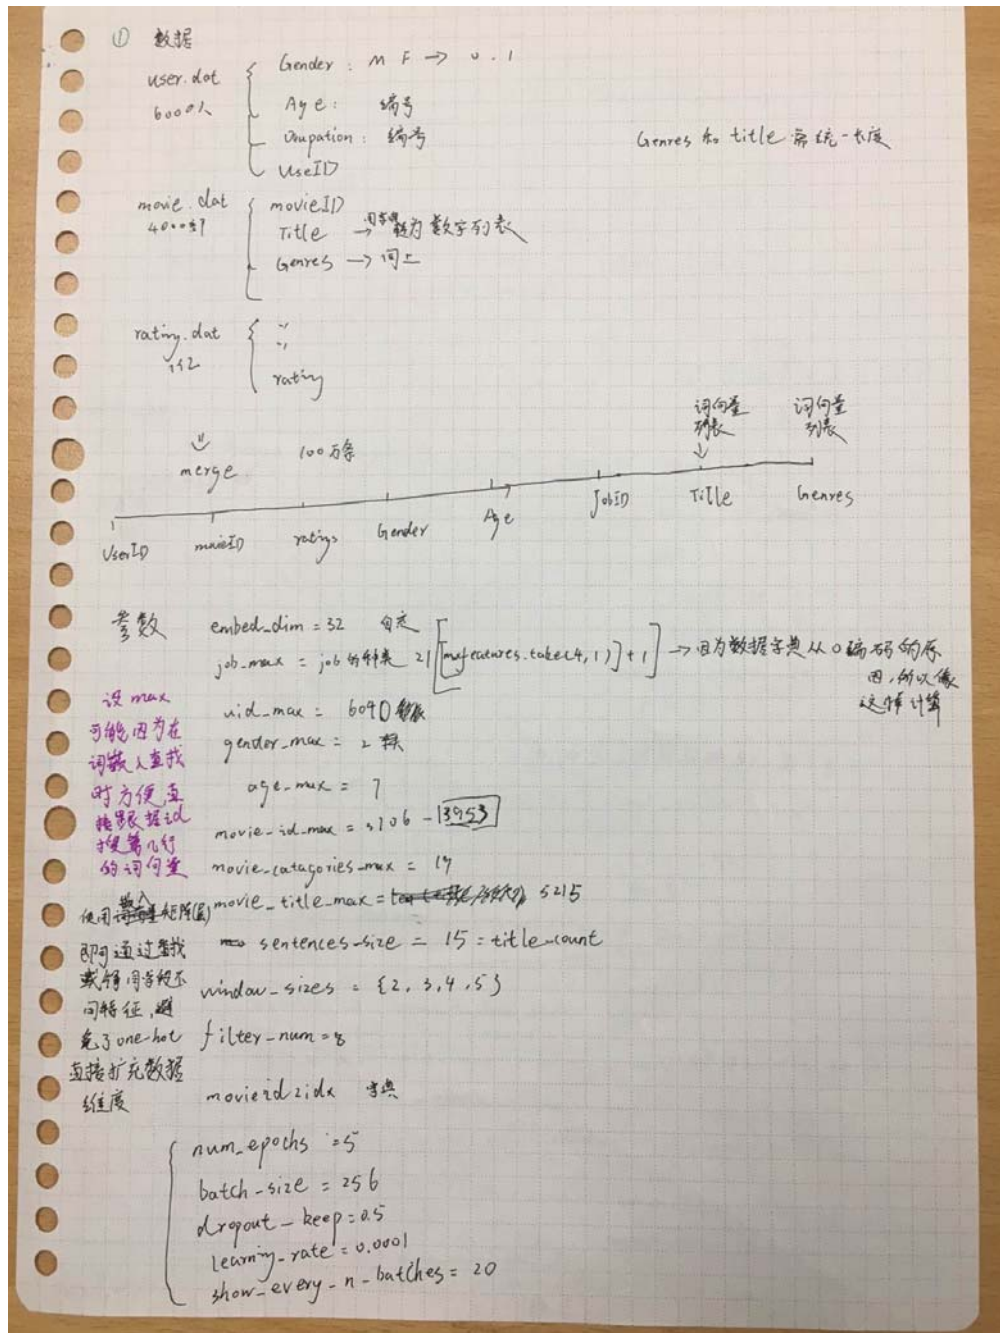 ① 数据
user.dat
6000人
Gender : M F → 0.1
Age : 编号
Ocupation : 编号
UseID
Genres 和 title 需统一长度
movie.dat
movieID
Title → 为数字列表
Genres → 同上
rating.dat
rating
merge 100万条
词向量
列表
词向量
列表
UserID movieID ratings Gender Age JobID Title Genres
参数 embed_dim = 32 自定
job_max = job的种类 21 [features.take(4,1)] + 1] → 因为数据字典从0编码的原
因,所以像
这样计算
设 max
可能因为在
词嵌入查找
时方便直
接跟据id
找第几行
的词向量
uid_max = 6040
gender_max = 2
age_max = 7
movie_id_max = 3706 - 13953
movie_catagories_max = 19
movie_title_max = 5215
sentences_size = 15 = title_count
window_sizes = {2, 3, 4, 5}
filter_num = 8
movieid2idx 字典
使用嵌入矩阵(层)
即可通过查找
同特征,避
免了one-hot
直接扩充数据
维度
num_epochs = 5
batch_size = 256
dropout_keep = 0.5
learning_rate = 0.0001
show_every_n_batches = 20